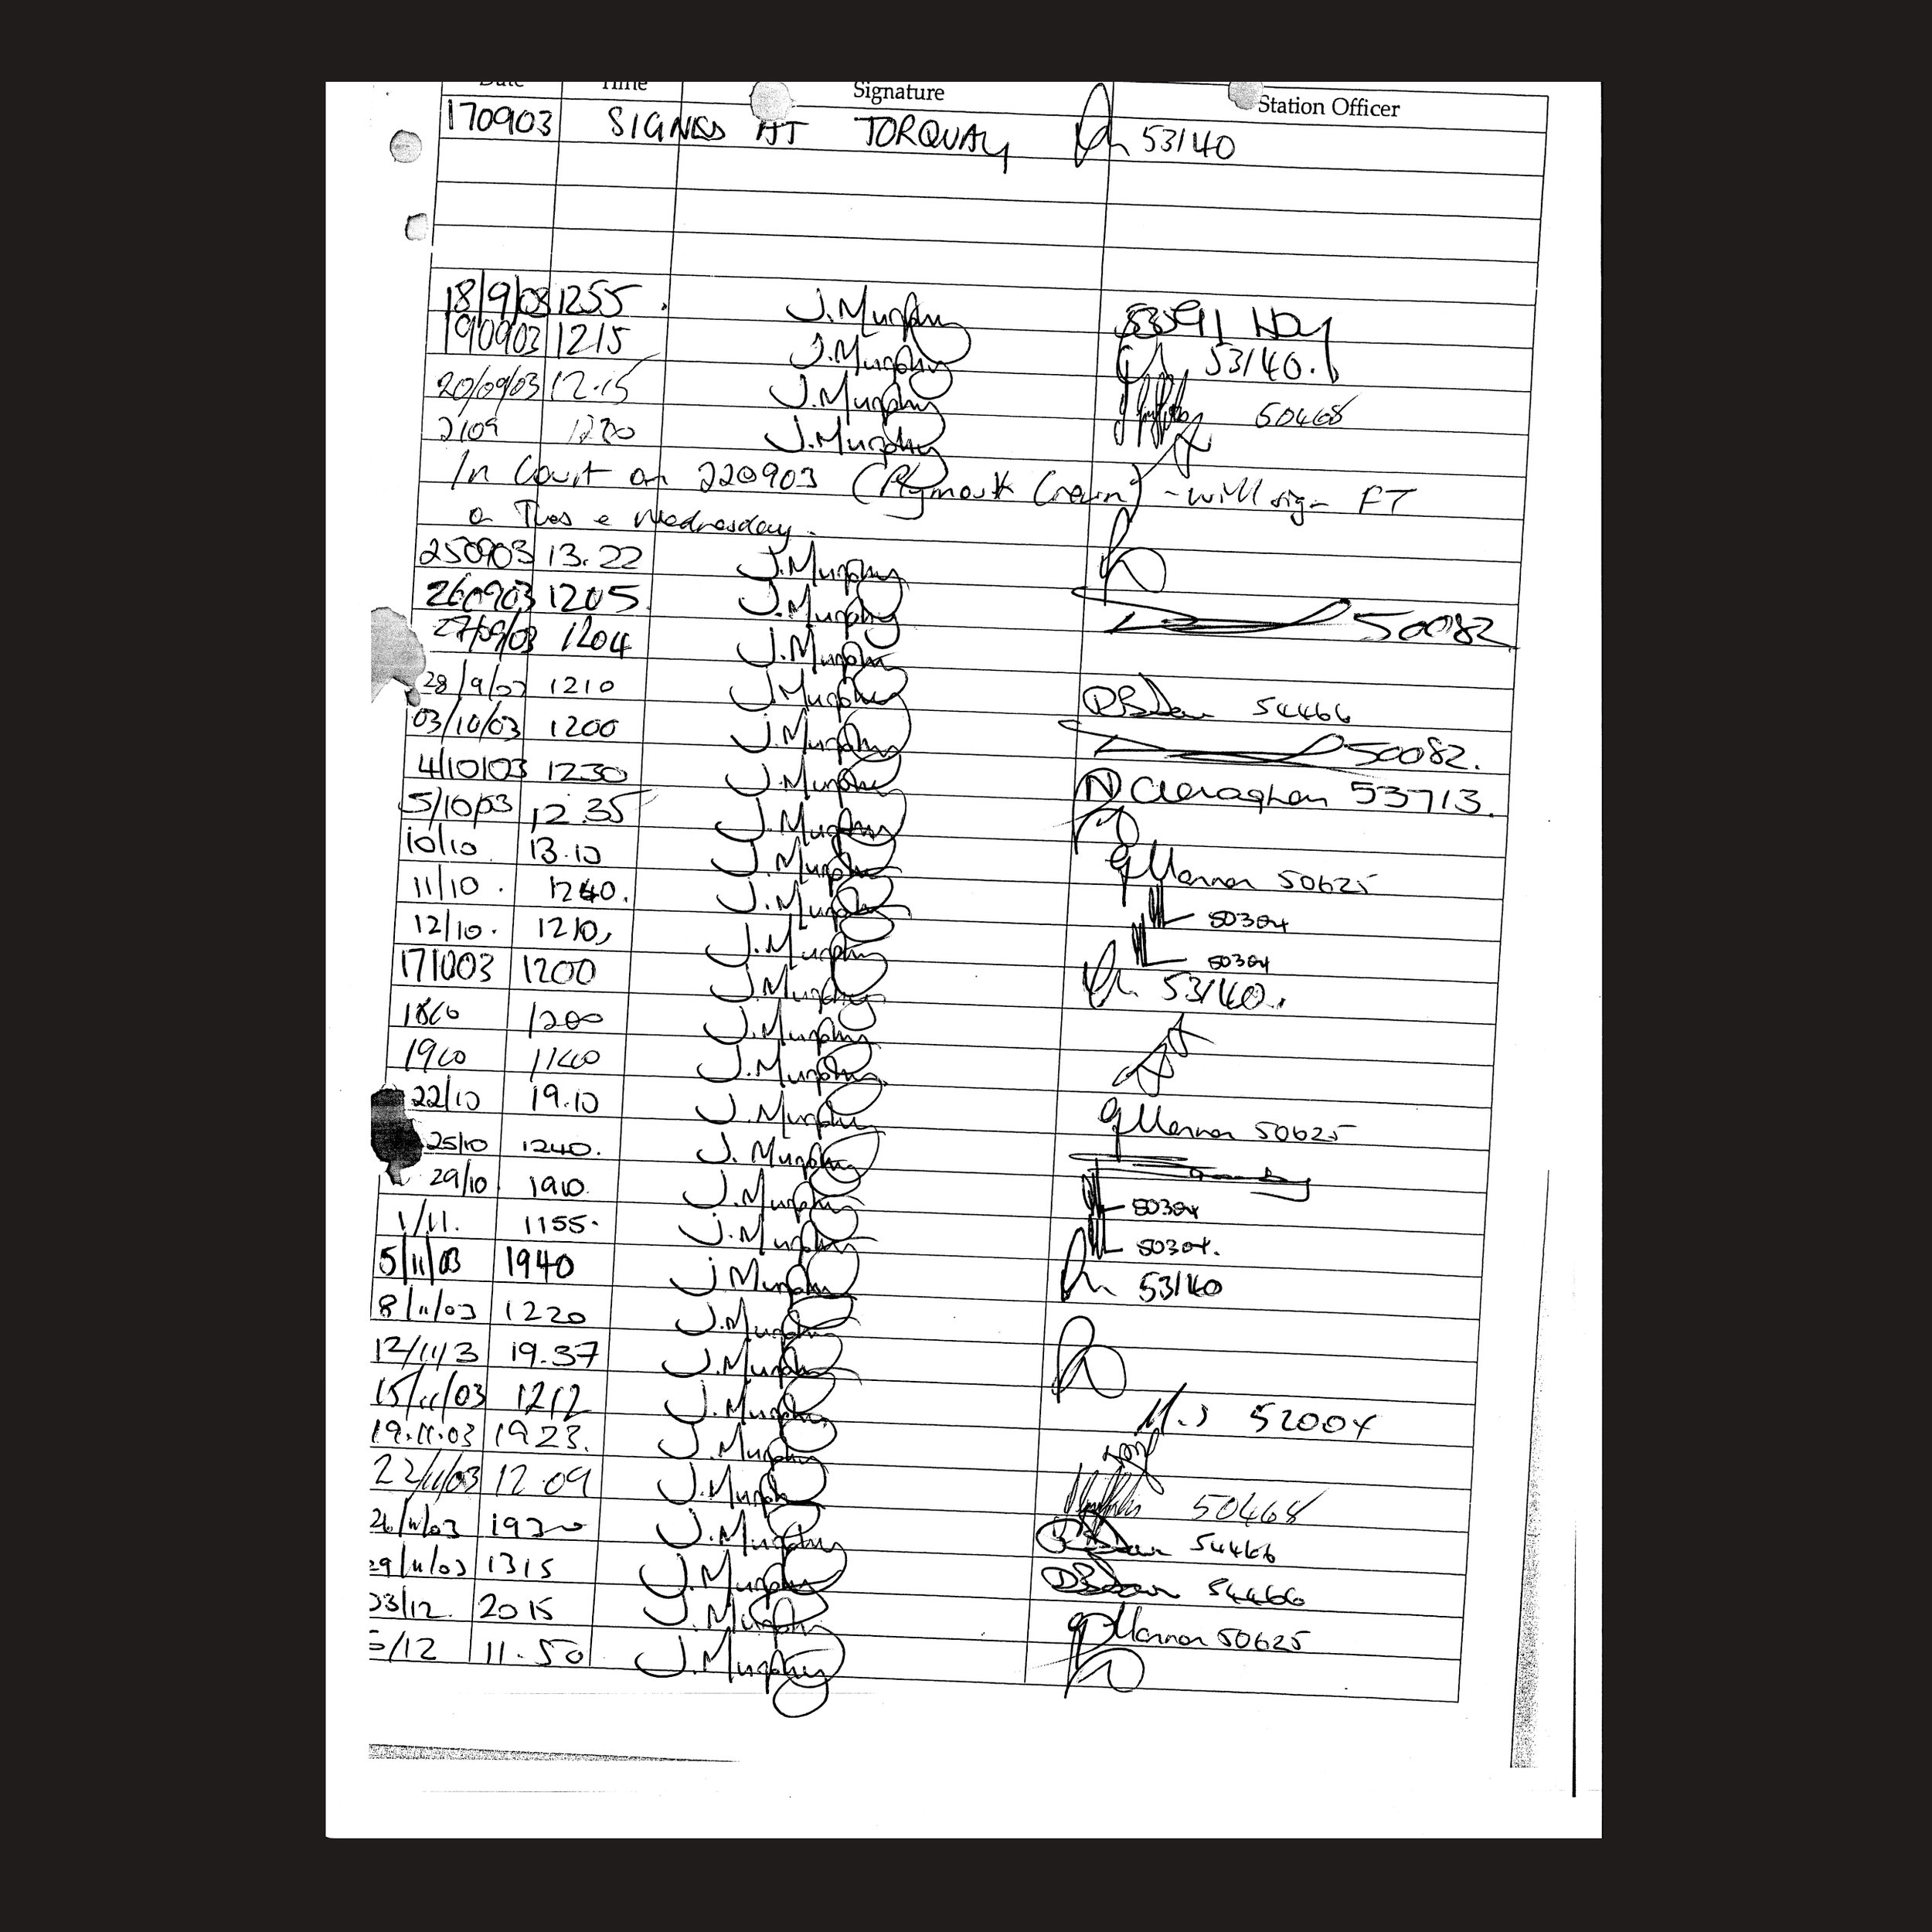 Date Time Signature Station Officer
170903 SIGNED AT TORQUAY 53140
18/9/03 1255. J.Murphy 53591
190903 1215 J.Murphy 53140.
20/09/03 12.15 J.Murphy 50468
2109 1220 J.Murphy
In Court on 220903 (Plymouth Crown) - will sign FT
on Tues & Wednesday.
250903 13.22 J.Murphy
260903 1205. J.Murphy 50082
27/09/03 1204 J.Murphy
28/9/03 1210 J.Murphy 54466
03/10/03 1200 J.Murphy 50082.
4/10/03 1230 J.Murphy 53713.
5/10/03 12.35 J.Murphy
10/10 13.10 J.Murphy 50625
11/10. 1240. J.Murphy 50304
12/10. 1210, J.Murphy 50304
171003 1200 J.Murphy 53140.
18/10 1200 J.Murphy
19/10 1140 J.Murphy
22/10 19.10 J.Murphy 50625
25/10 1240. J. Murphy
29/10 1910. J.Murphy 50304
1/11. 1155. J.Murphy 50304.
5/11/03 1940 J Murphy 53140
8/11/03 1220 J.Murphy
12/11/3 19.37 J.Murphy
15/11/03 1212 J.Murphy 52004
19.11.03 1923. J.Murphy
22/11/03 12.09 J.Murphy 50468
26/11/03 1930 J.Murphy 54466
29/11/03 1315 J.Murphy 54466
03/12. 2015 J.Murphy 50625
/12 11.50 J.Murphy